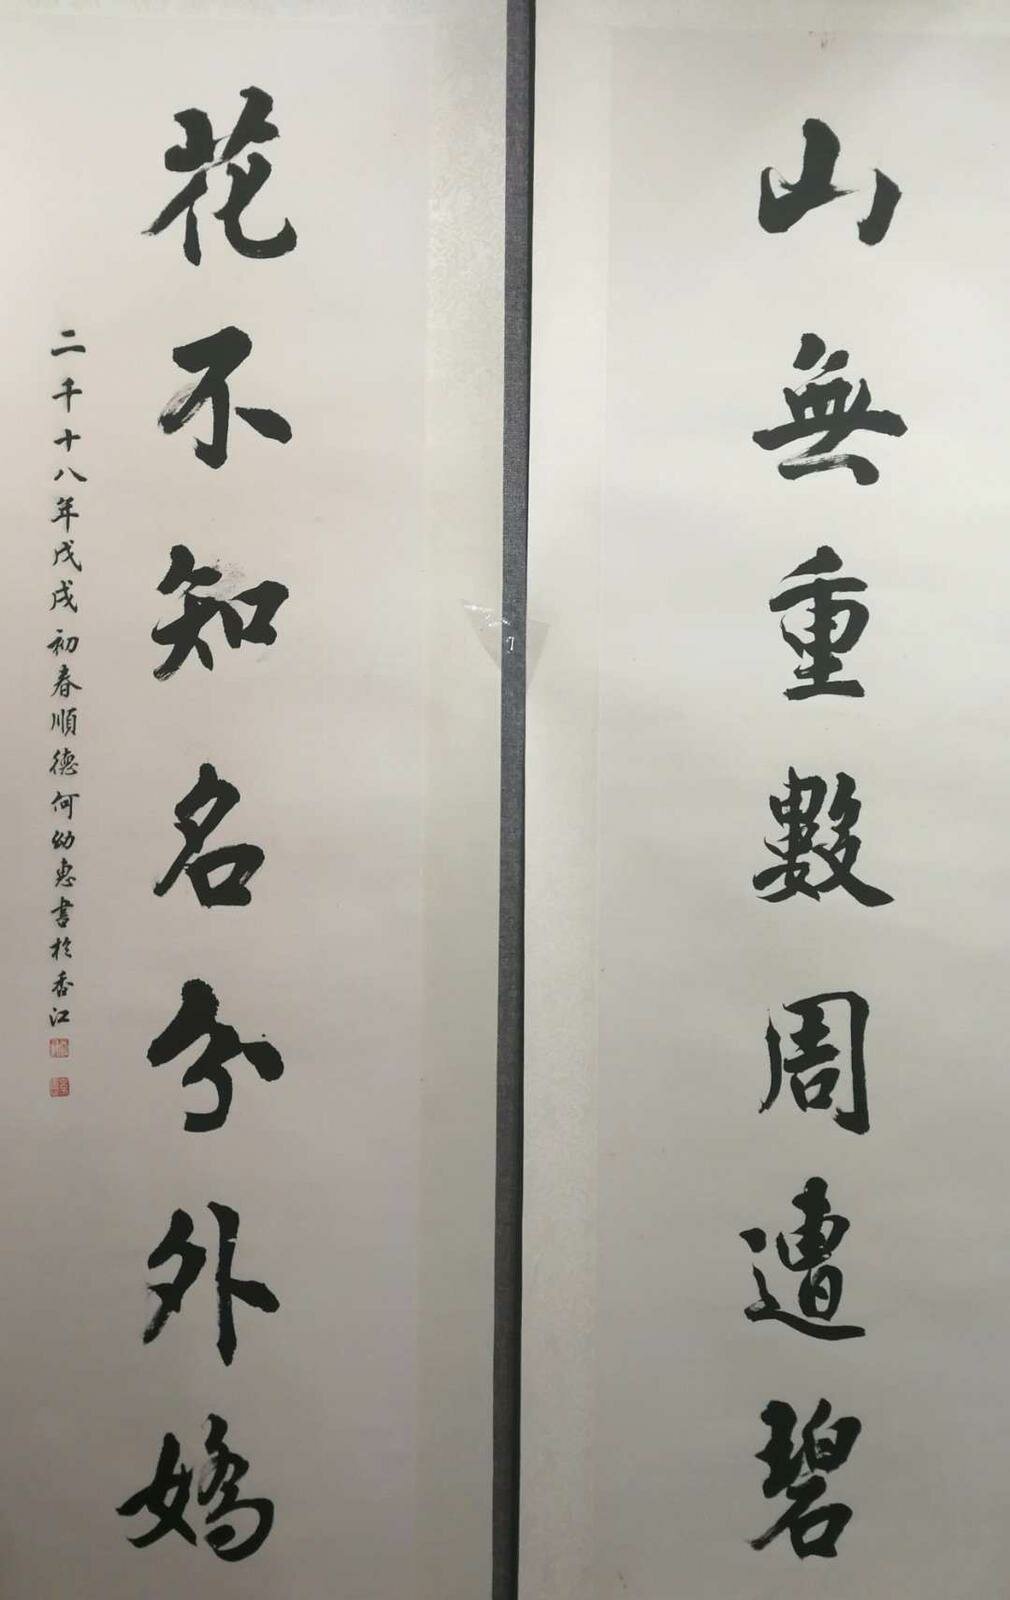 山無重數周遭碧
花不知名分外嬌
二千十八年戊戌初春順德何幼惠書於香江